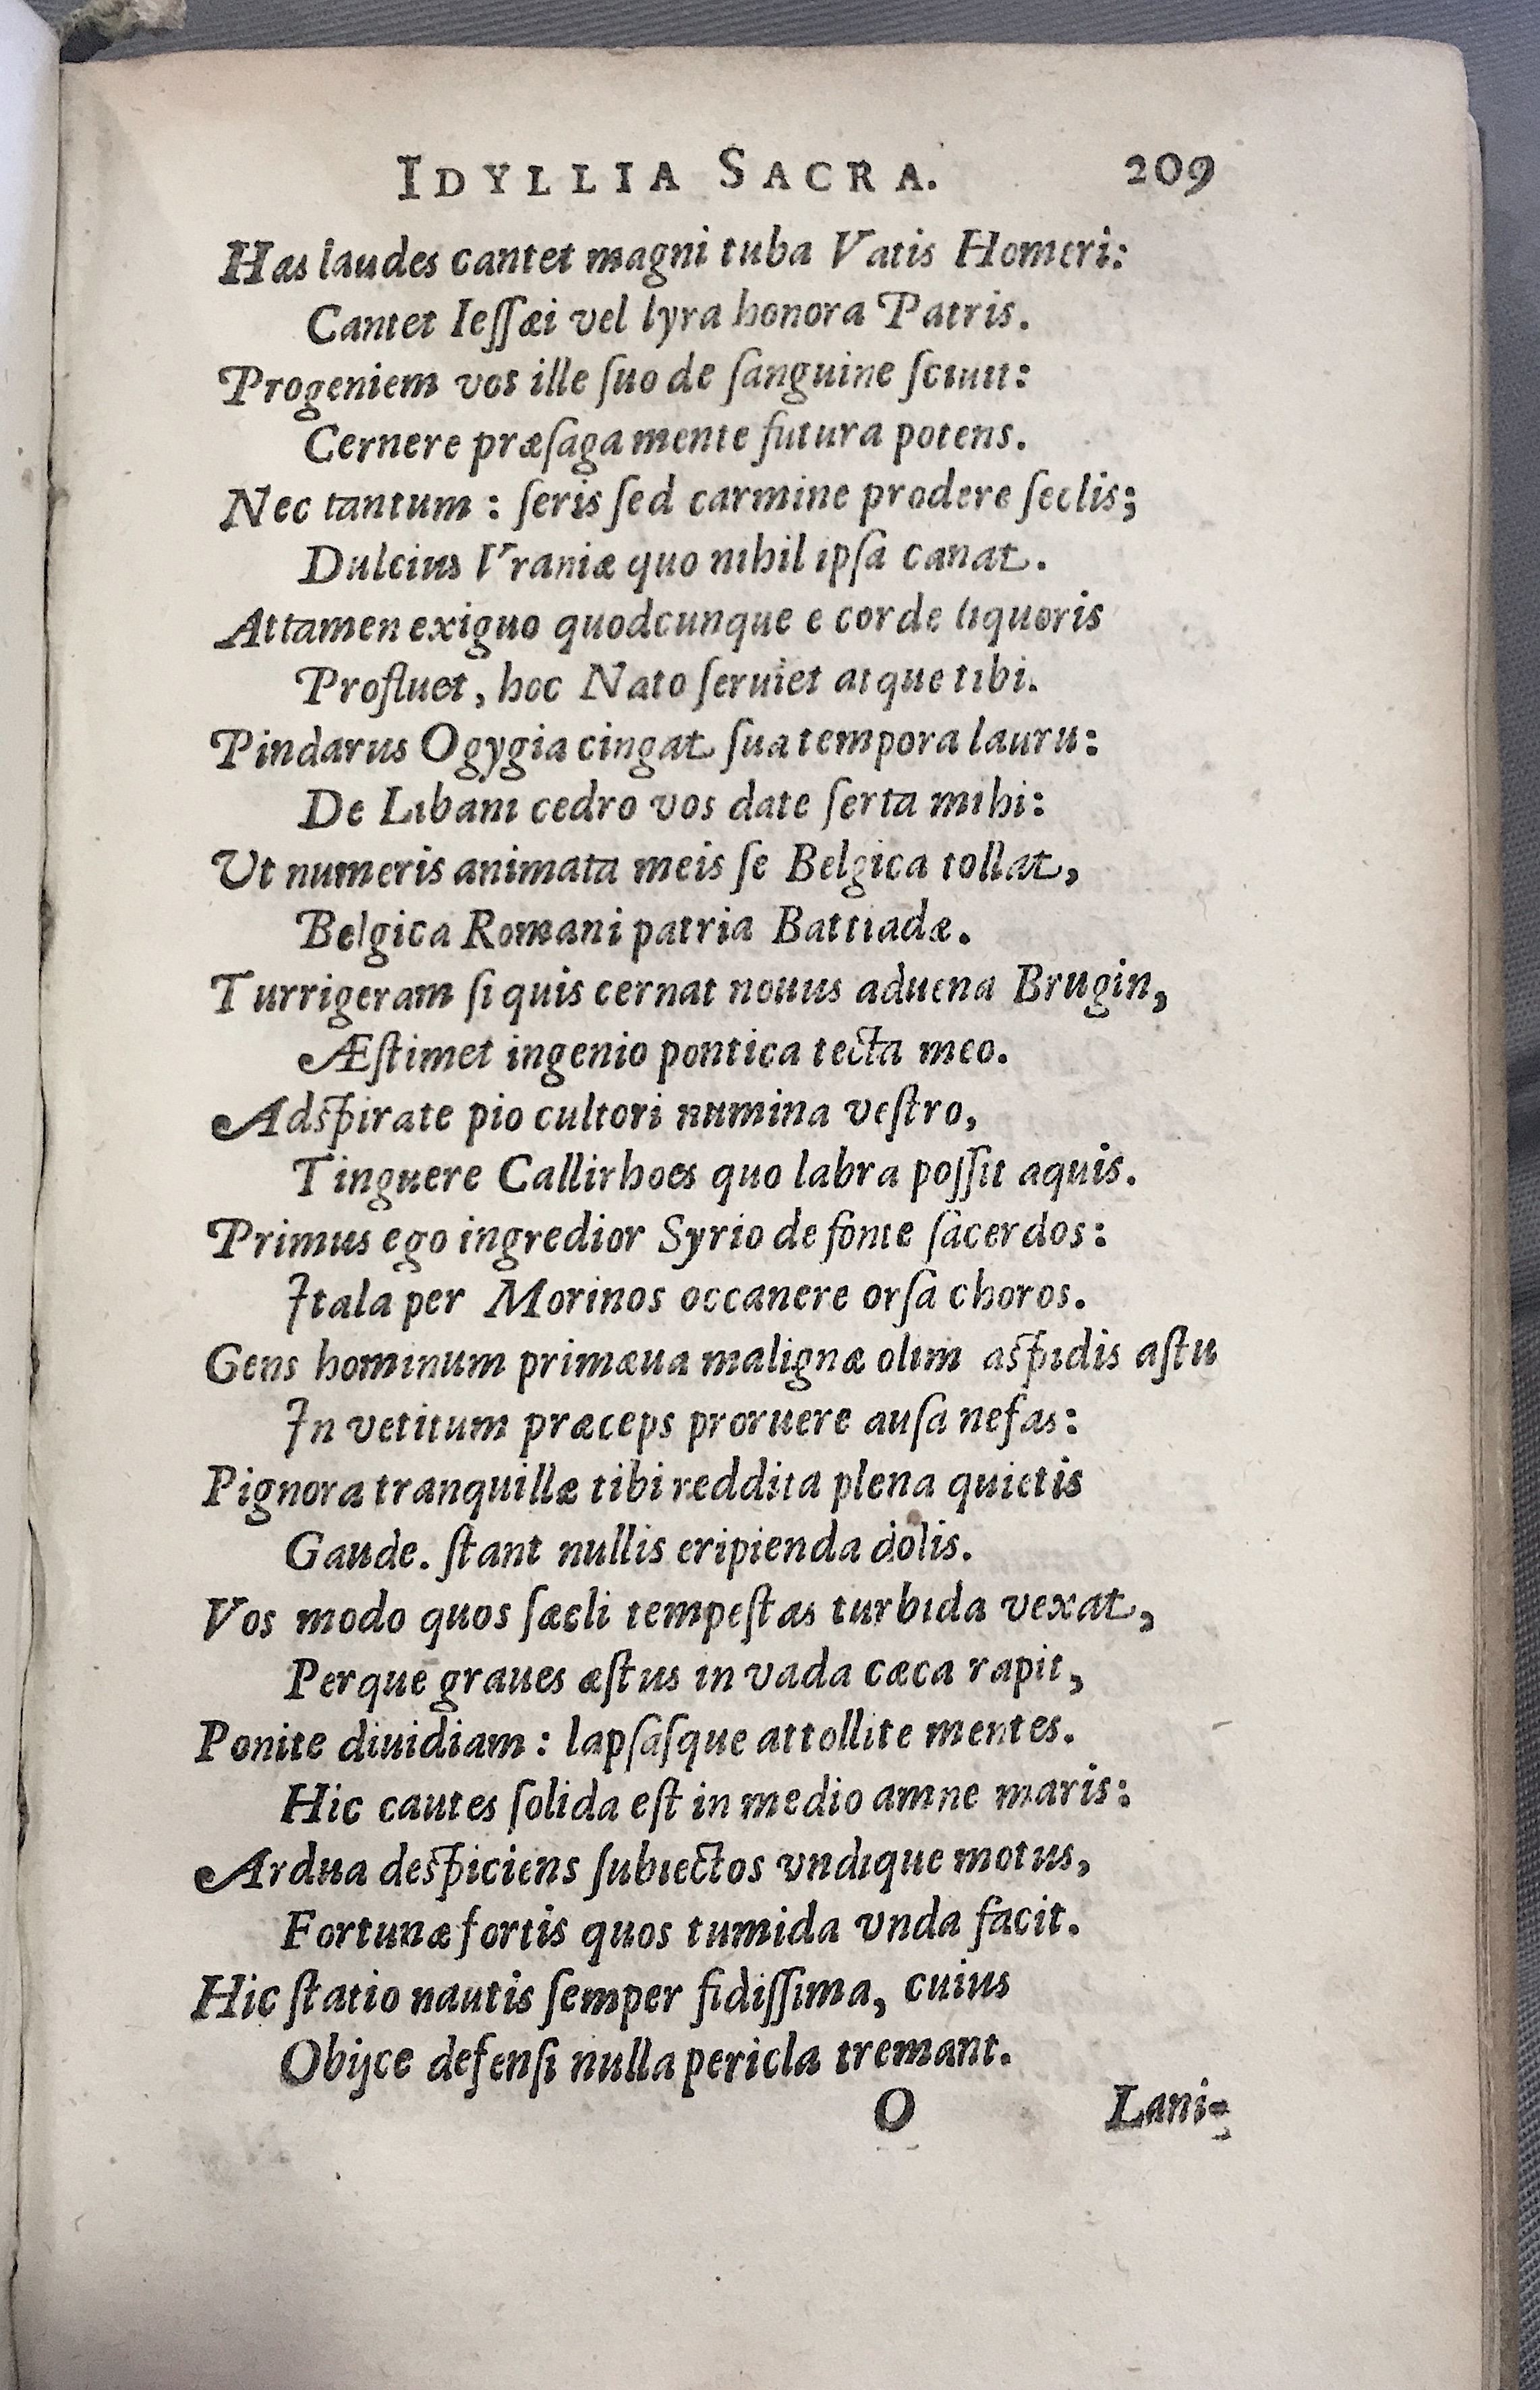 IDYLLIA SACRA. 209
Has laudes cantet magni tuba Vatis Homeri:
Cantet Ieſſæi vel lyra honora Patris.
Progeniem vos ille ſuo de ſanguine ſciuit:
Cernere præſaga mente futura potens.
Nec tantum : ſeris ſed carmine prodere ſeclis;
Dulcius Vraniæ quo nihil ipſa canat.
Attamen exiguo quodcunque e corde liquoris
Profluet, hoc Nato ſeruiet atque tibi.
Pindarus Ogygia cingat ſua tempora lauru:
De Libani cedro vos date ſerta mihi:
Ut numeris animata meis ſe Belgica tollat,
Belgica Romani patria Battiadæ.
Turrigeram ſi quis cernat nouus aduena Brugin,
Æſtimet ingenio pontica tecta meo.
Adſpirate pio cultori numina veſtro,
Tinguere Callirhoes quo labra poſſit aquis.
Primus ego ingredior Syrio de fonte ſacerdos:
Itala per Morinos occanere orſa choros.
Gens hominum primæua malignæ olim aſpidis aſtu
In vetitum præceps proruere auſa nefas:
Pignora tranquillæ tibi reddita plena quietis
Gaude. ſtant nullis eripienda dolis.
Vos modo quos ſæcli tempeſtas turbida vexat,
Perque graues æſtus in vada cæca rapit,
Ponite diuidiam : lapſaſque attollite mentes.
Hic cautes ſolida eſt in medio amne maris:
Ardua deſpiciens ſubiectos vndique motus,
Fortunæ fortis quos tumida vnda facit.
Hic ſtatio nautis ſemper fidiſſima, cuius
Obijce defenſi nulla pericla tremant.
O Lani-